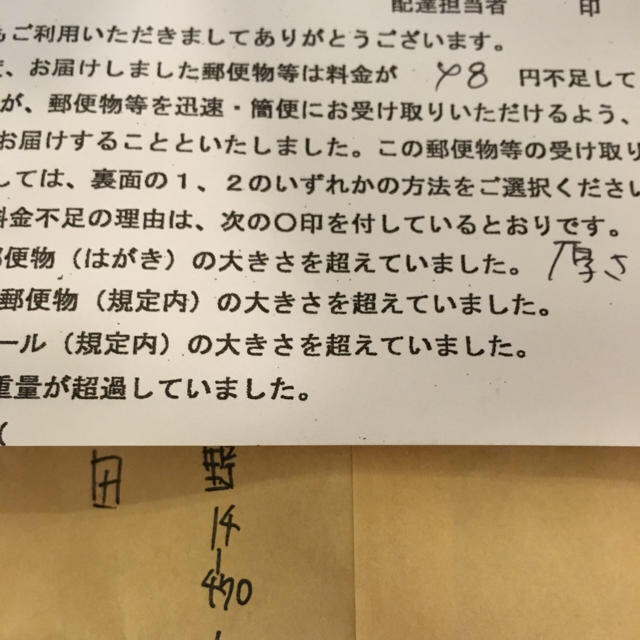 配達担当者 印
もご利用いただきましてありがとうございます。
、お届けしました郵便物等は料金が 48 円不足して
が、郵便物等を迅速・簡便にお受け取りいただけるよう、
お届けすることといたしました。この郵便物等の受け取り
しては、裏面の1、2のいずれかの方法をご選択ください
料金不足の理由は、次の〇印を付しているとおりです。
郵便物（はがき）の大きさを超えていました。 厚さ
郵便物（規定内）の大きさを超えていました。
ール（規定内）の大きさを超えていました。
重量が超過していました。
（
田 野
14
470